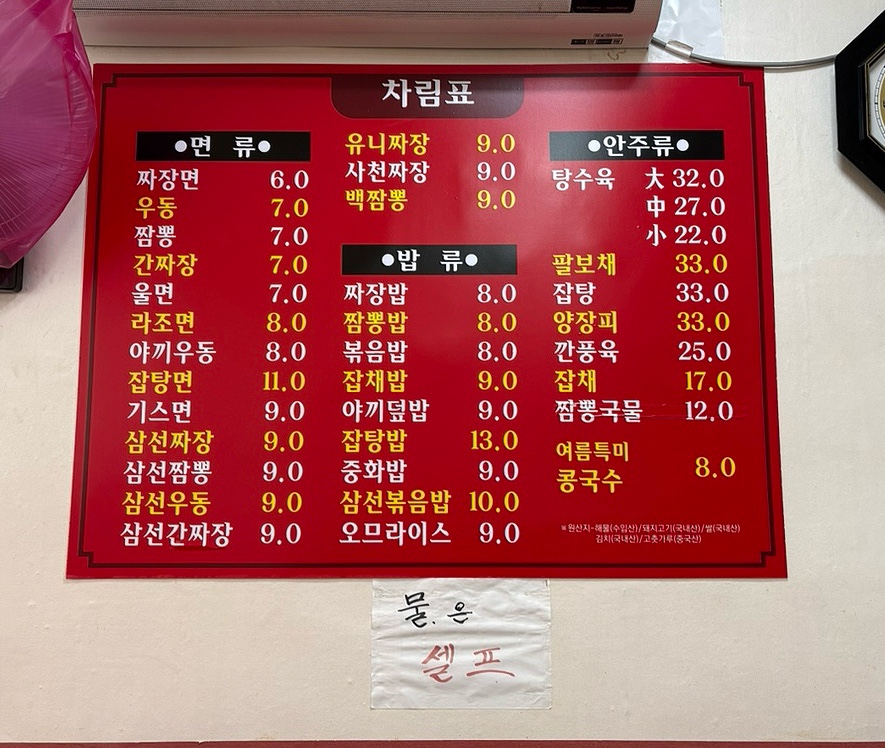 차림표
●면 류●
짜장면 6.0
우동 7.0
짬뽕 7.0
간짜장 7.0
울면 7.0
라조면 8.0
야끼우동 8.0
잡탕면 11.0
기스면 9.0
삼선짜장 9.0
삼선짬뽕 9.0
삼선우동 9.0
삼선간짜장 9.0
유니짜장 9.0
사천짜장 9.0
백짬뽕 9.0
●밥 류●
짜장밥 8.0
짬뽕밥 8.0
볶음밥 8.0
잡채밥 9.0
야끼덮밥 9.0
잡탕밥 13.0
중화밥 9.0
삼선볶음밥 10.0
오므라이스 9.0
●안주류●
탕수육 大 32.0
中 27.0
小 22.0
팔보채 33.0
잡탕 33.0
양장피 33.0
깐풍육 25.0
잡채 17.0
짬뽕국물 12.0
여름특미
콩국수 8.0
※원산지-해물(수입산)/돼지고기(국내산)/쌀(국내산)
김치(국내산)/고춧가루(중국산)
물.은
셀프